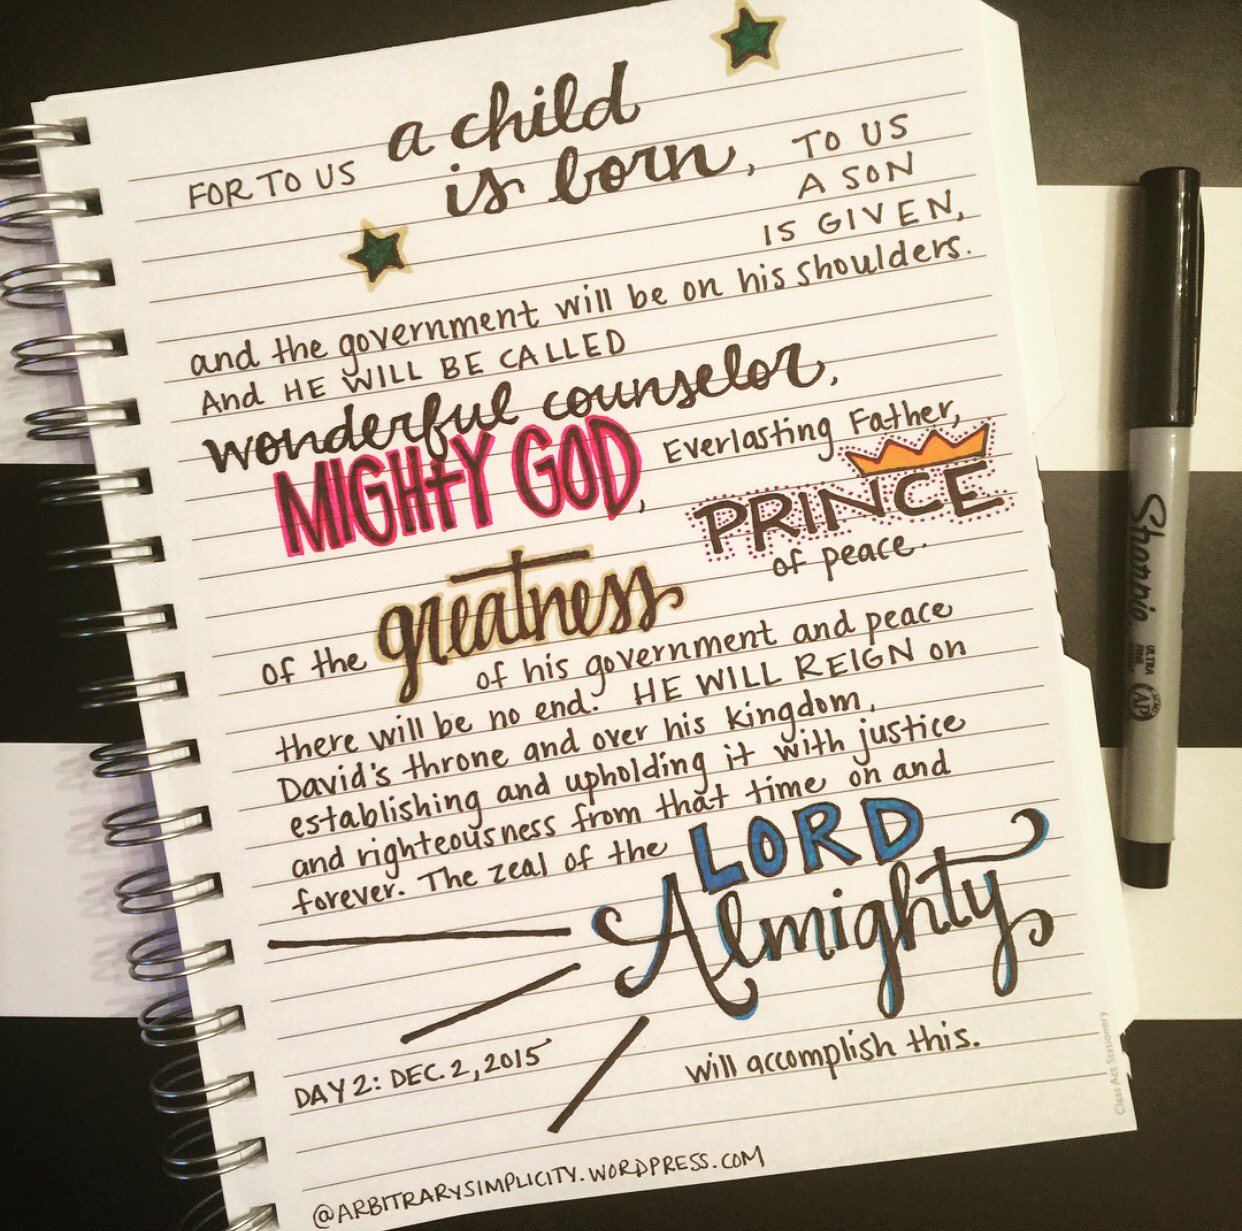 FOR TO US a child
is born, TO US
A SON
IS GIVEN,
and the government will be on his shoulders.
And HE WILL BE CALLED
wonderful counselor,
MIGHtY GOD, Everlasting Father,
PRINCE
of peace.
of the greatness of his government and peace
there will be no end. HE WILL REIGN on
David's throne and over his kingdom,
establishing and upholding it with justice
and righteousness from that time on and
forever. The zeal of the LORD
Almighty
will accomplish this.
DAY 2: DEC. 2, 2015
@ARBITRARYSIMPLICITY.WORDPRESS.COM
Class Act Stationery
Sharpie
ULTRA
FINE
AP